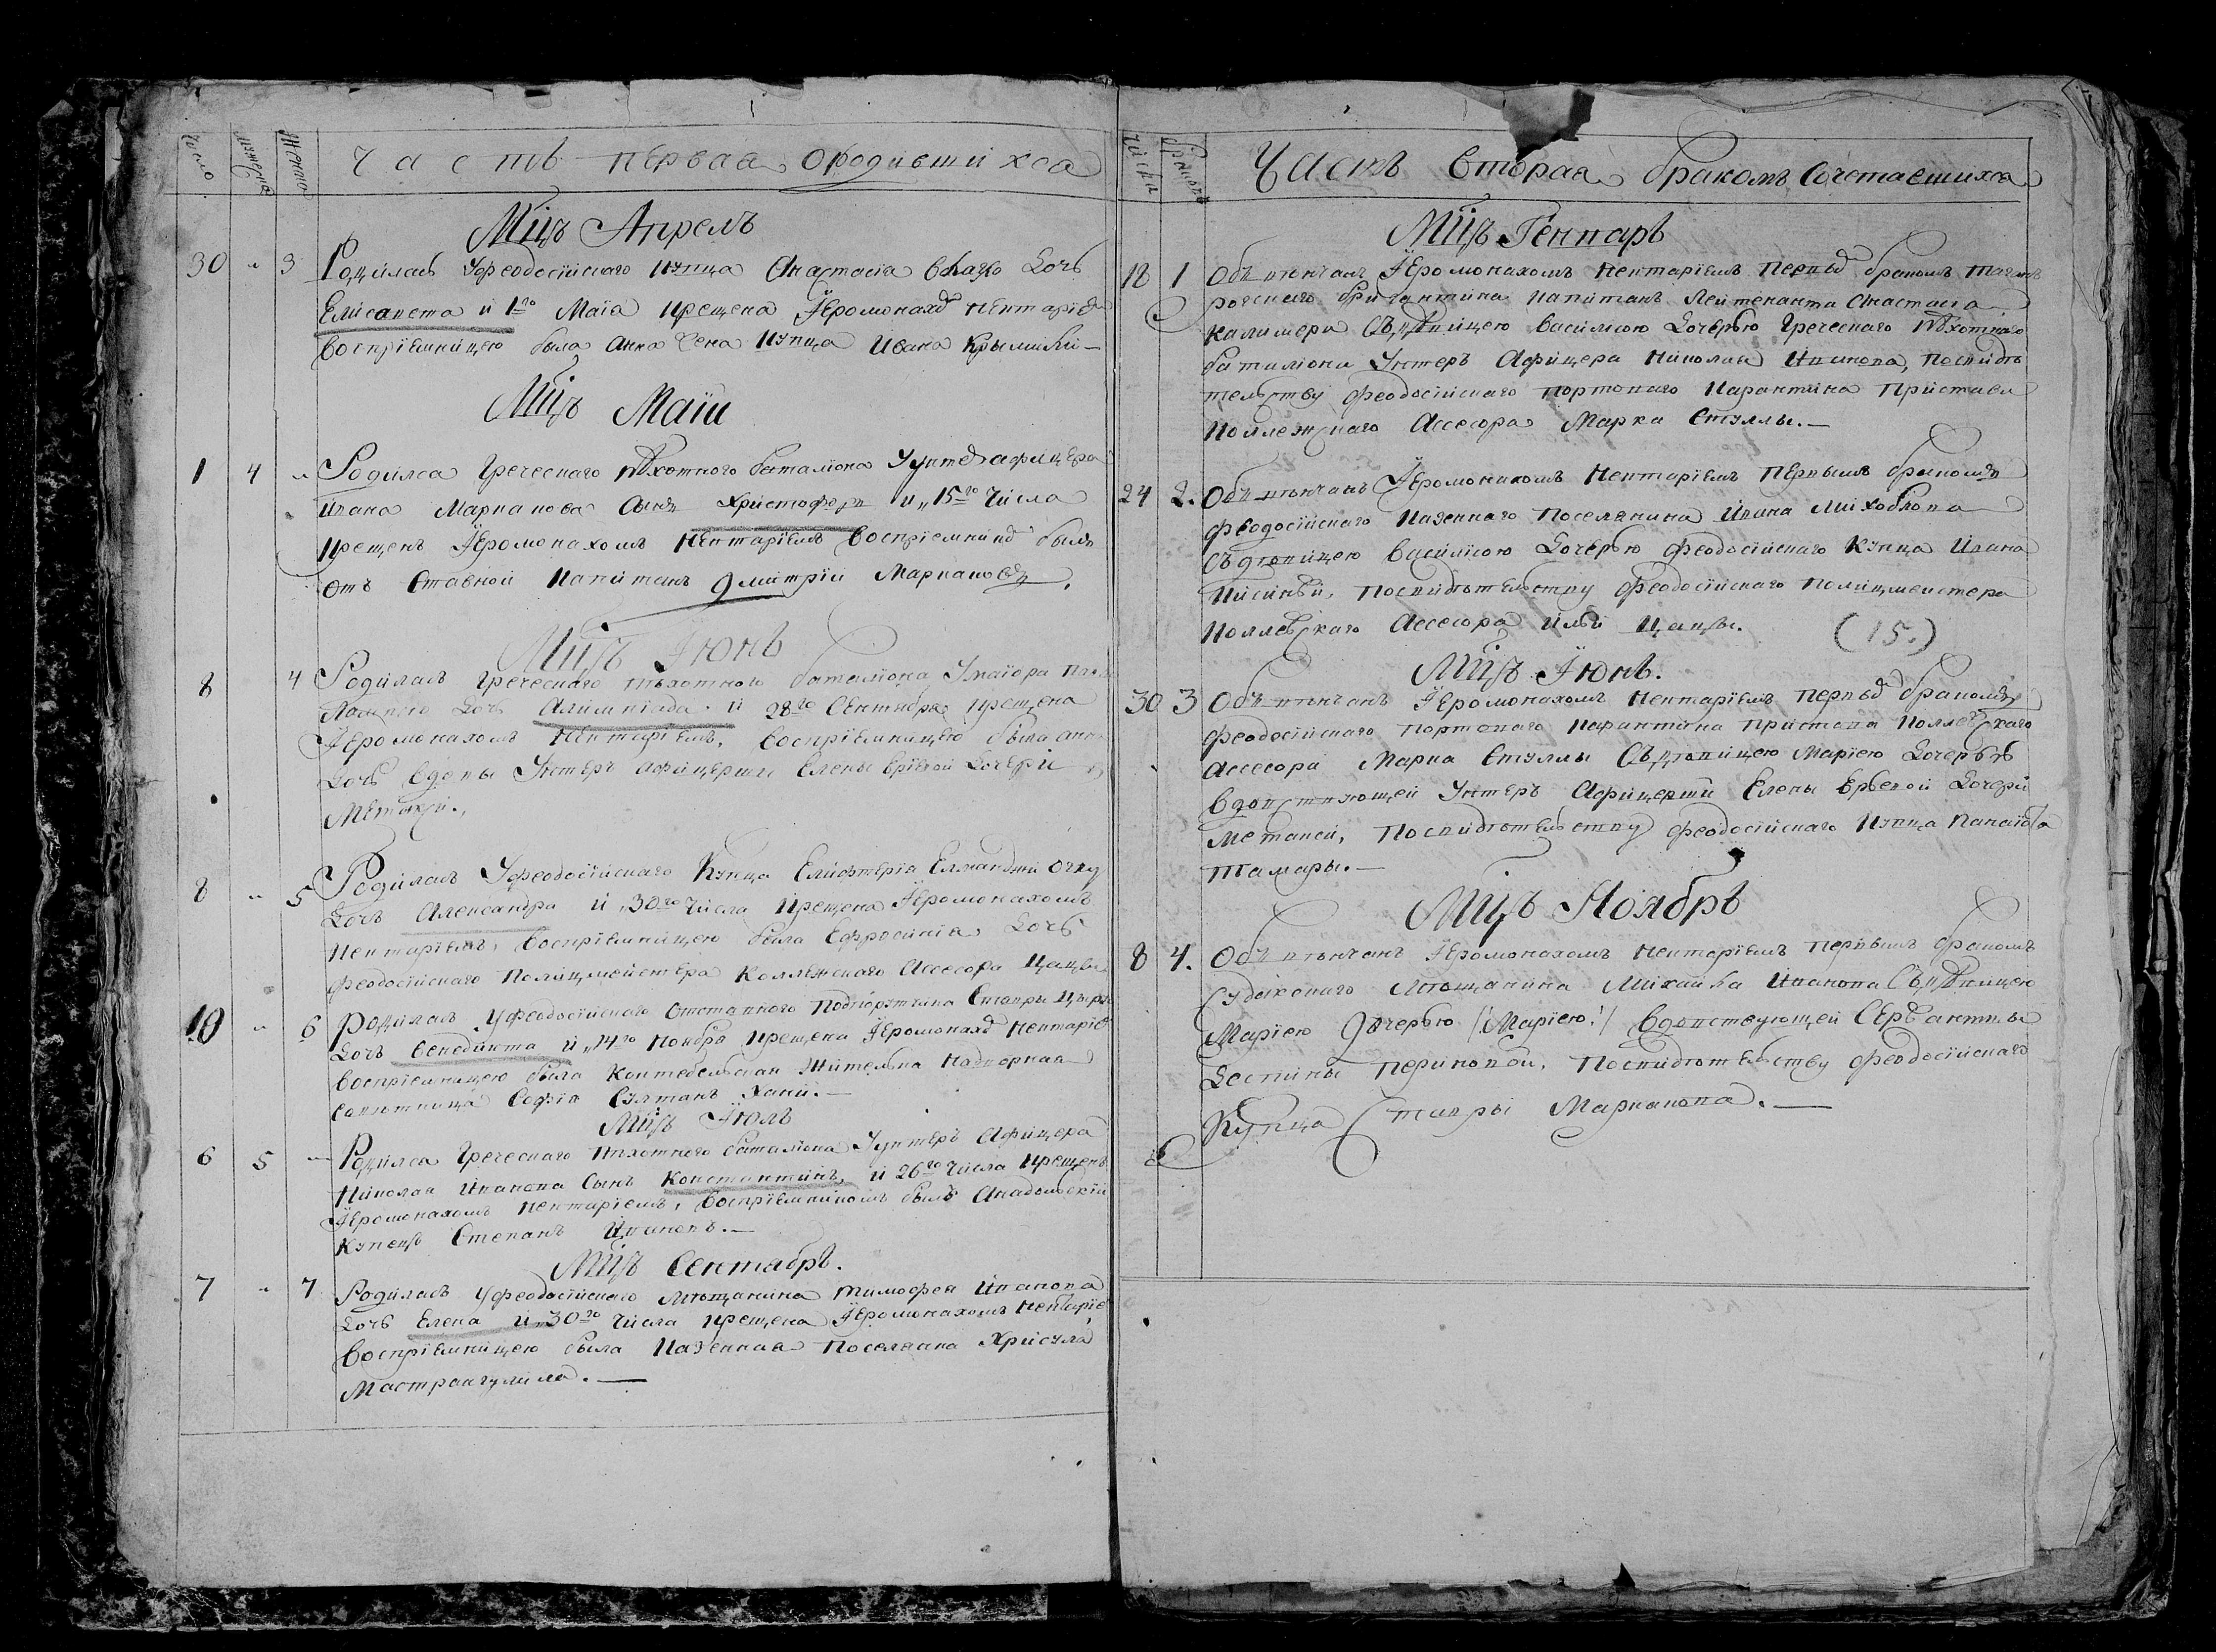 число
мужеска
женска
Часть первая о родившихса
Мцъ Апрель
30 " 3 Родилась У феодосійскаго купца Анастасіа Дочь
Елисавета и 1го Маіа крещена Іеромонахо Нектаріе
воспріемницею была Анна Жена купца Ивана
Мцъ Маіи
1 4 " Родилса Греческаго пѣхотного баталіона У унтеръ афицера
Ивана Марканова Сынъ Христофоръ и 15го Числа
крещенъ Іеромонахомъ Нектаріемъ Воспріемнико былъ
отъ Ставной капитанъ Дмитрій Маркановъ.
Мцъ Іюнь
8 4 Родилась Греческаго пѣхотного баталіона У маіора
Дочь Алимпіада и 28го Сентября крещена
Іеромонахомъ Нектаріемъ, воспріемницею была Анна
Дочь вдовы Унтеръ афицерши Елены Дочери
8 " 5 Родилась У феодосійскаго Купца Елифтеріа
Дочь Александра и 30го Числа крещена Іеромонахомъ
Нектаріемъ, воспріемницею была Ефросиніа Дочь
феодосійскаго Полицмейстера Коллежскаго Ассесора Цацы
10 " 6 Родилась У феодосійскаго Отставного Подпорутчика Ставры
Дочь Венедикта и 14го Ноября крещена Іеромонахо Нектаріе
воспріемницею была Жителька Надворнаа
Совѣтница Софіа Султанъ Хани.—
Мцъ Іюль
6 5 — Родилса Греческаго Пѣхотного баталіона У унтеръ Афицера
Николаа Иванова Сынъ Константинъ и 26го Числа крещенъ
Іеромонахомъ Нектаріемъ, воспріемникомъ былъ Анадольскій
Купецъ Степанъ Ивановъ.—
Мцъ Сентабрь.
7 " 7 Родилась У феодосійскаго Мѣщанина Тимофеа Иванова
Дочь Елена и 30го Числа крещена Іеромонахомъ Нектаріе
воспріемницею была Казеннаа Поселанка Хрисула
Мастрангулила.—
Часть вторая браком Сочетавшихса
Мцъ Генварь
18 1 Обвѣнчанъ Іеромонахомъ Нектаріемъ Первы бракомъ
бригантина капитанъ Лейтенанта Анастаса
Калимери Съ дѣвицею Василисою Дочерью Греческаго Пѣхотнаго
баталіона Унтеръ Афицера Николаа Иванова, Посвидѣ
тельству феодосійскаго Портоваго Карантина Пристава
Коллежскаго Ассесора Марка Стуллы.—
24 2. Обвѣнчанъ Іеромонахомъ Нектаріемъ Первымъ бракомъ
феодосійскаго Казеннаго Поселянина Ивана
Съ дѣвицею Василисою Дочерью феодосійскаго Купца Ивана
Посвидѣтельству феодосійскаго Полицмейстера
Коллежскаго Ассесора Ильи Цацы. (15.)
Мцъ Іюнь.
30 3 Обвѣнчанъ Іеромонахомъ Нектаріемъ Первы бракомъ
феодосійскаго Портоваго Карантина Пристава Коллежскаго
Ассесора Марка Стуллы Съ дѣвицею Маріею Дочерью
вдовствующей Унтеръ Афицерши Елены Дочери
Метакси, Посвидѣтельству феодосійскаго Купца Панаіота
Тамары.—
Мцъ Ноябрь
8 4. Обвѣнчанъ Іеромонахомъ Нектаріемъ Первымъ бракомъ
Судакскаго Мѣщанина Михаила Иванова Съ дѣвицею
Маріею Дочерью /:Маріею:/ вдовствующей Сержантши
Деспины Периковой, Посвидѣтельству феодосійскаго
Купца Ставри Марканова.—